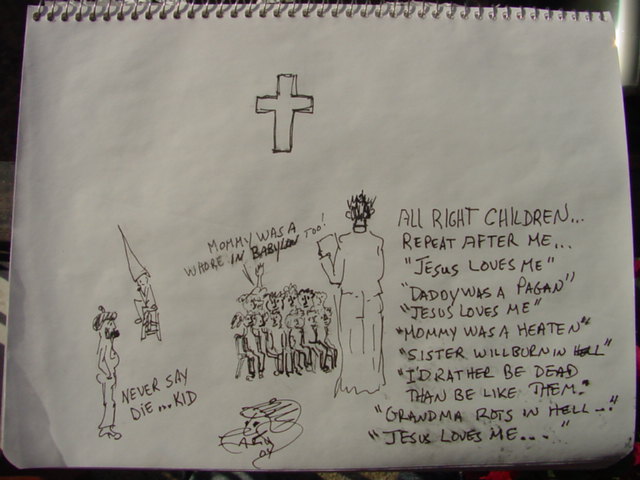 MOMMY WAS A
WHORE IN BABYLON TOO!
ALL RIGHT CHILDREN...
REPEAT AFTER ME...
"JESUS LOVES ME"
"DADDY WAS A PAGAN"
"JESUS LOVES ME"
"MOMMY WAS A HEATEN"
"SISTER WILL BURN IN HELL"
"I'D RATHER BE DEAD
THAN BE LIKE THEM."
"GRANDMA ROTS IN HELL..."
"JESUS LOVES ME...."
NEVER SAY
DIE...KID